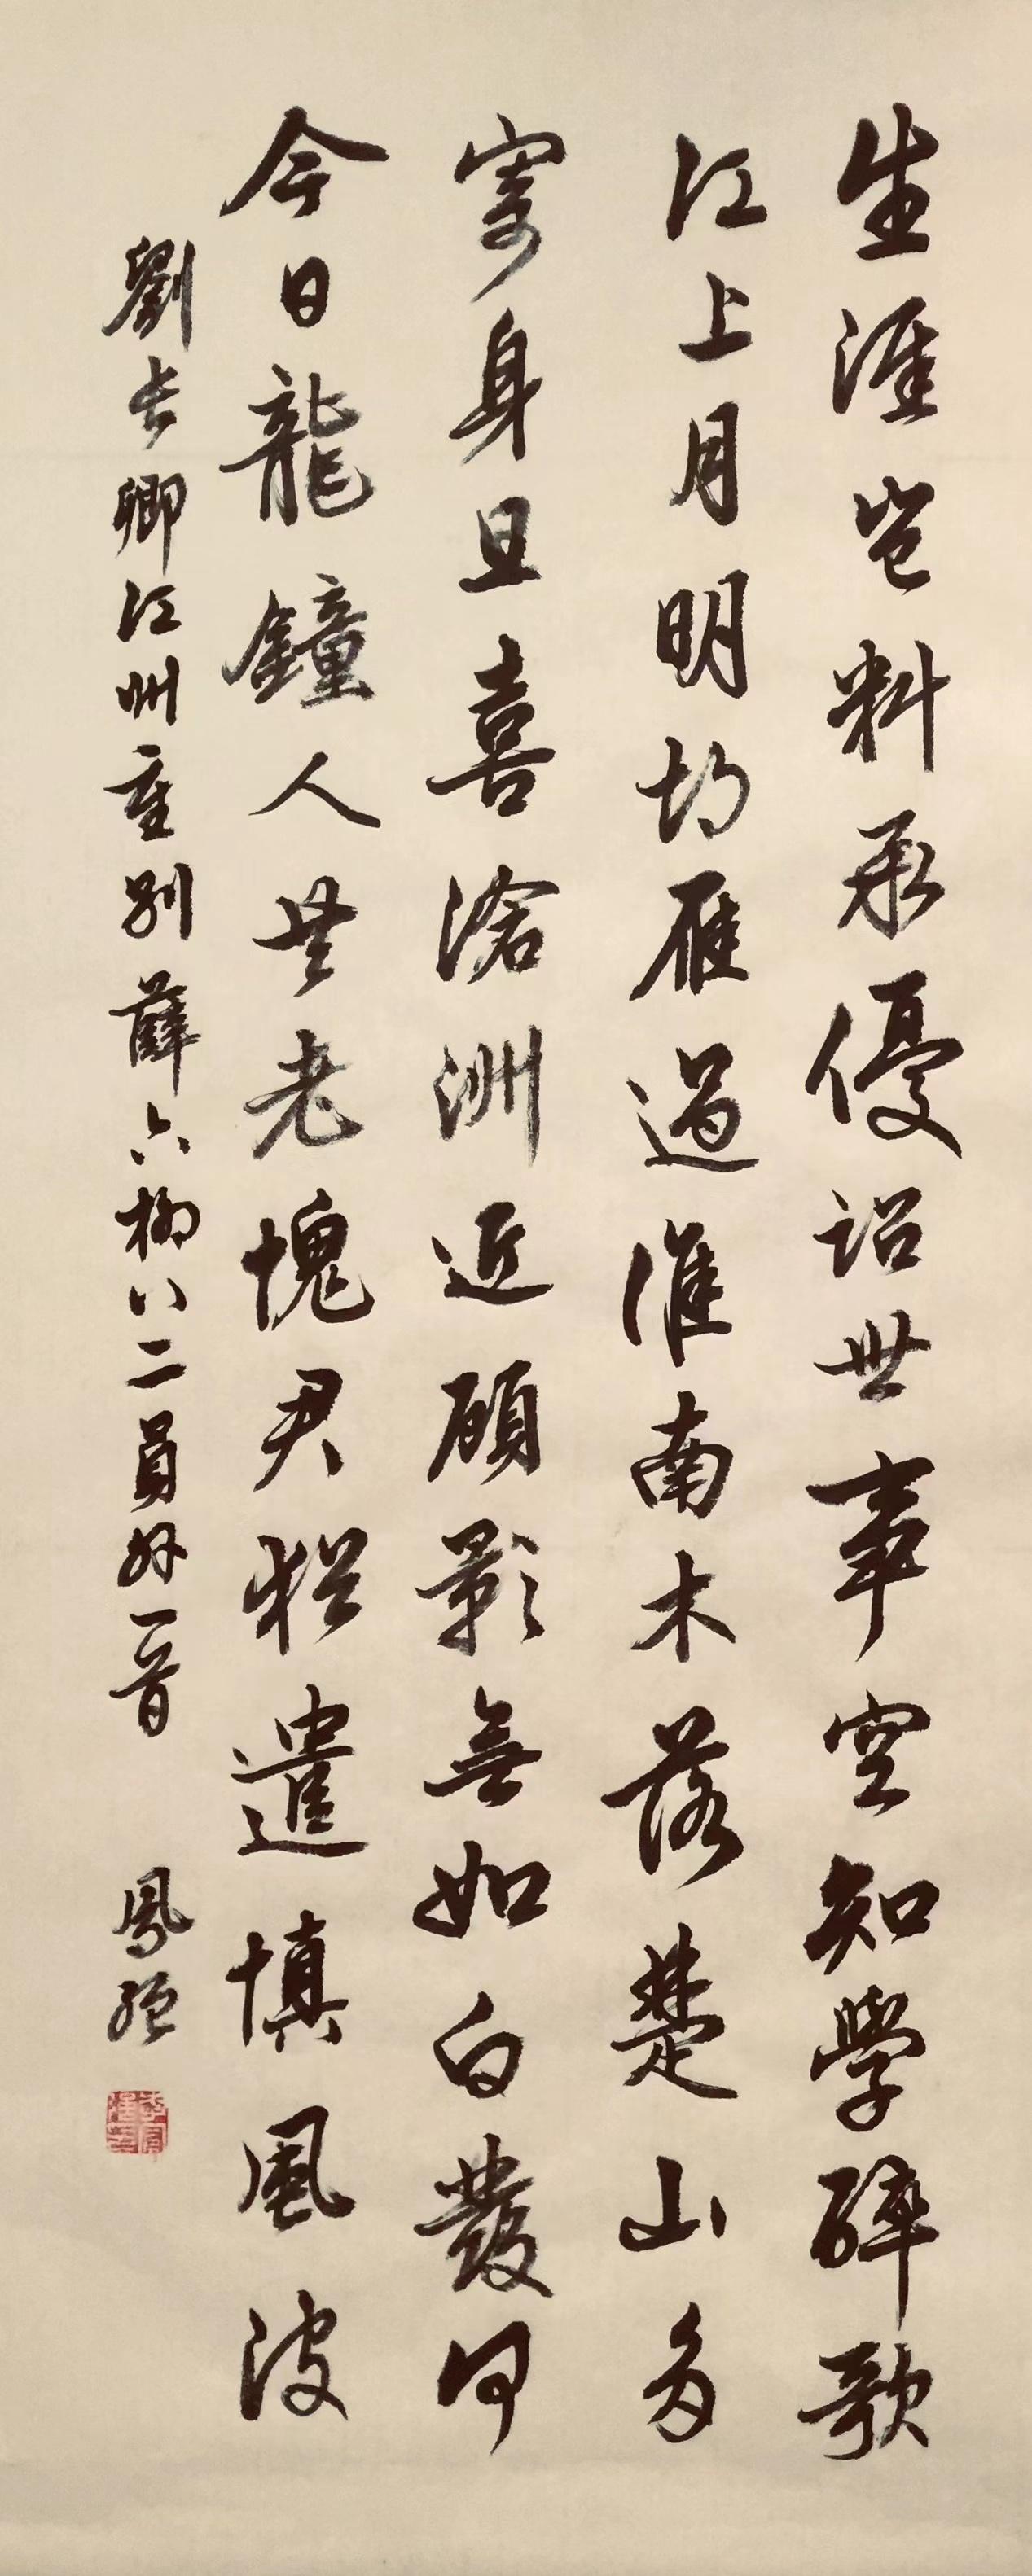 生涯豈料承優詔世事空知學醉歌
江上月明胡雁過淮南木落楚山多
寄身且喜滄洲近顧影無如白發何
今日龍鐘人共老愧君猶遣慎風波
劉長卿江州重別薛六柳八二員外一首 鳳强